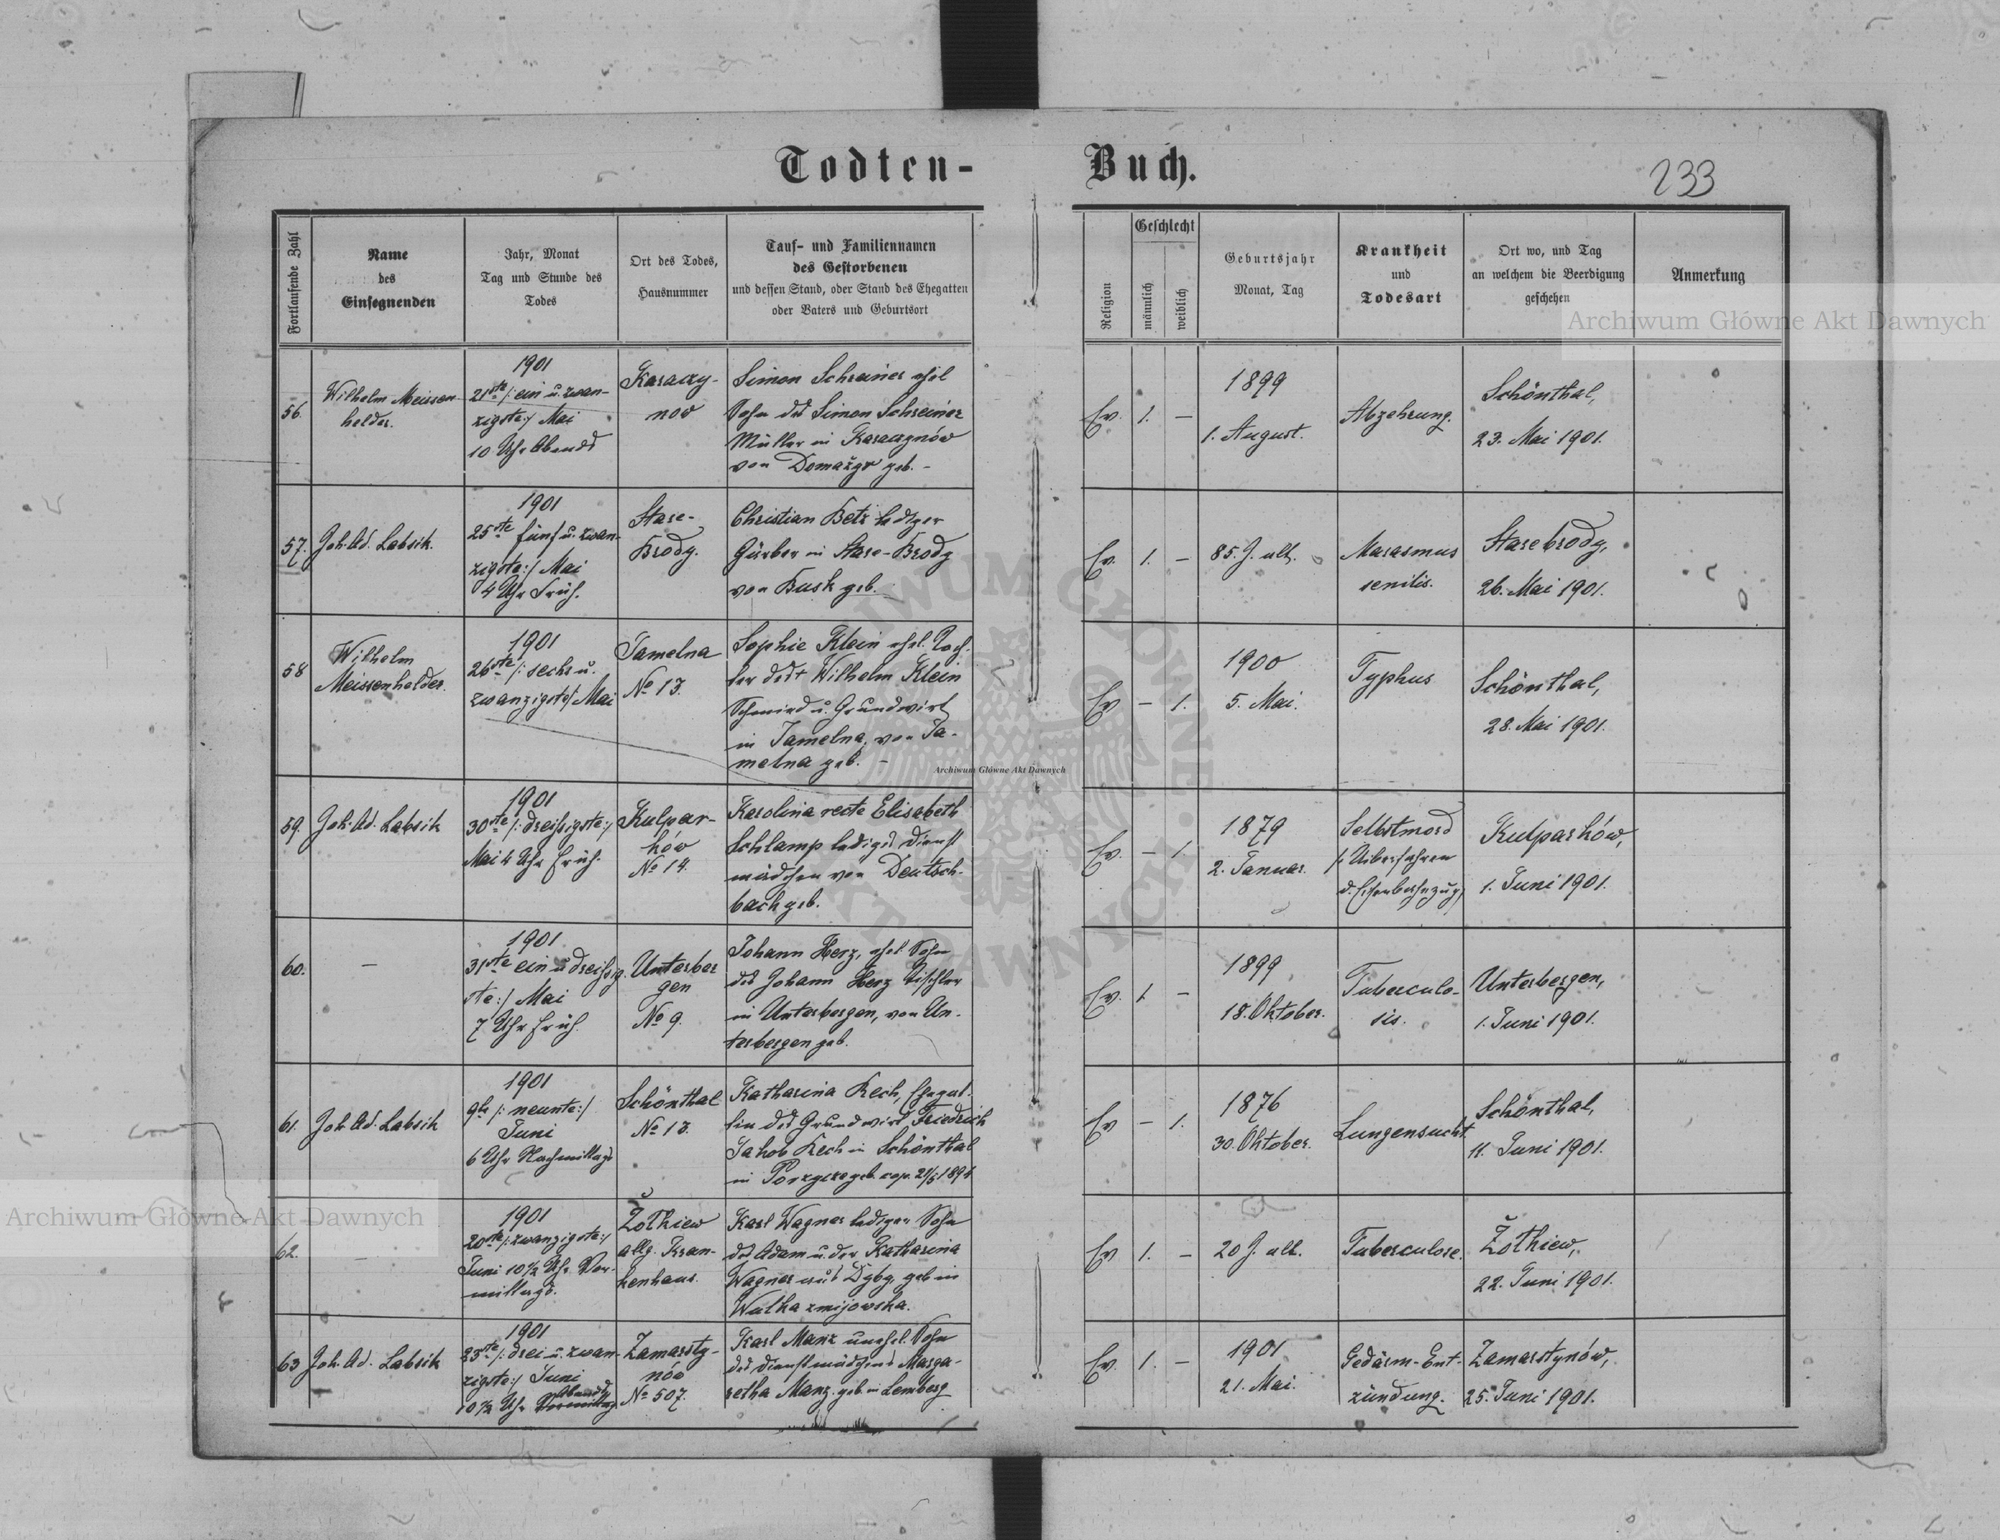 Todten- Buch.
233
Fortlaufende Zahl
Name
des
Einsegnenden
Jahr, Monat
Tag und Stunde des
Todes
Ort des Todes,
Hausnummer
Tauf- und Familiennamen
des Gestorbenen
und dessen Stand, oder Stand des Ehegatten
oder Vaters und Geburtsort
Religion
Geschlecht
männlich
weiblich
Geburtsjahr
Monat, Tag
Krankheit
und
Todesart
Ort wo, und Tag
an welchem die Beerdigung
geschehen
Anmerkung
56.
Wilhelm Meissen-
helder.
1901
21ste /: ein u. zwan-
zigste :/ Mai
10 Uhr Abends
Karaczy-
nov
Simon Schreiner ehel
Sohn des Simon Schreiner
Müller in Karaczynów
von Domažyr geb. -
Ev. 1. -
1899
1. August.
Abzehrung.
Schönthal,
23. Mai 1901.
57.
Joh. Ad. Labsik.
1901
25ste fünf u. zwan-
zigste :/ Mai
4 Uhr Früh.
Stare-
Brody.
Christian Betz lediger
Gärber in Stare-Brody
von Busk geb.
Ev. 1. -
85. J. alt.
Marasmus
senilis.
Stare brody,
26. Mai 1901.
58
Wilhelm
Meissenhelder.
1901
26ste /: sechs u.
zwanzigste :/ Mai
Jamelna
No 13.
Sophie Klein ehel. Toch-
ter des + Wilhelm Klein
Schmied u. Grundwirt
in Jamelna, von Ja-
melna geb. -
Ev - 1.
1900
5. Mai.
Typhus
Schönthal,
28. Mai 1901.
59.
Joh. Ad. Labsik
1901
30ste /: dreissigste :/
Mai 4 Uhr Früh.
Kulpar-
ków
No 14.
Karolina recte Elisabeth
Schlamp lediges Dienst
mädchen von Deutsch-
bach geb.
Ev. - 1.
1879
2. Januar.
Selbstmord
/: Ueberfahren
d. Eisenbahnzug :/
Kulparków,
1. Juni 1901.
60.
-
1901
31ste ein u dreissig-
ste :/ Mai
7 Uhr Früh
Unterber
gen
No 9.
Johann Herz, ehel. Sohn
des Johann Herz Tischler
in Unterbergen, von Un-
terbergen geb.
Ev. 1 -
1899
18. Oktober.
Tuberculo-
sis.
Unterbergen,
1. Juni 1901.
61.
Joh. Ad. Labsik
1901
9te /: neunte :/
Juni
6 Uhr Nachmittags
Schönthal
No 13.
Katharina Kech, Ehegat-
tin des Grundwirt Friedrich
Jakob Kech in Schönthal
in geb. cop.
Ev - 1.
1876
30. Oktober.
Lungensucht
Schönthal,
11. Juni 1901.
62.
-
1901
20ste /: zwanzigste :/
Juni 10½ Uhr Vor-
mittags.
Žołkiew
allg. Kran-
kenhaus.
Karl Wagner lediger Sohn
des Adam u. der Katharina
Wagner aus geb in
Wulka zmijowska.
Ev 1. -
20 J. alt.
Tuberculose.
Žołkiew,
22. Juni 1901.
63
Joh. Ad. Labsik
1901
23ste /: drei u. zwan-
zigste :/ Juni
Abends
10½ Uhr Vormittag
Zamarsty-
nów
No 507.
Karl Manz unehel. Sohn
des Dienstmädchens Marga-
retha Manz. geb. in Lemberg
Ev. 1. -
1901
21. Mai.
Gedärm-Ent-
zündung.
Zamarstynów,
25. Juni 1901.
Archiwum Główne Akt Dawnych
Archiwum Główne Akt Dawnych
Archiwum Główne Akt Dawnych